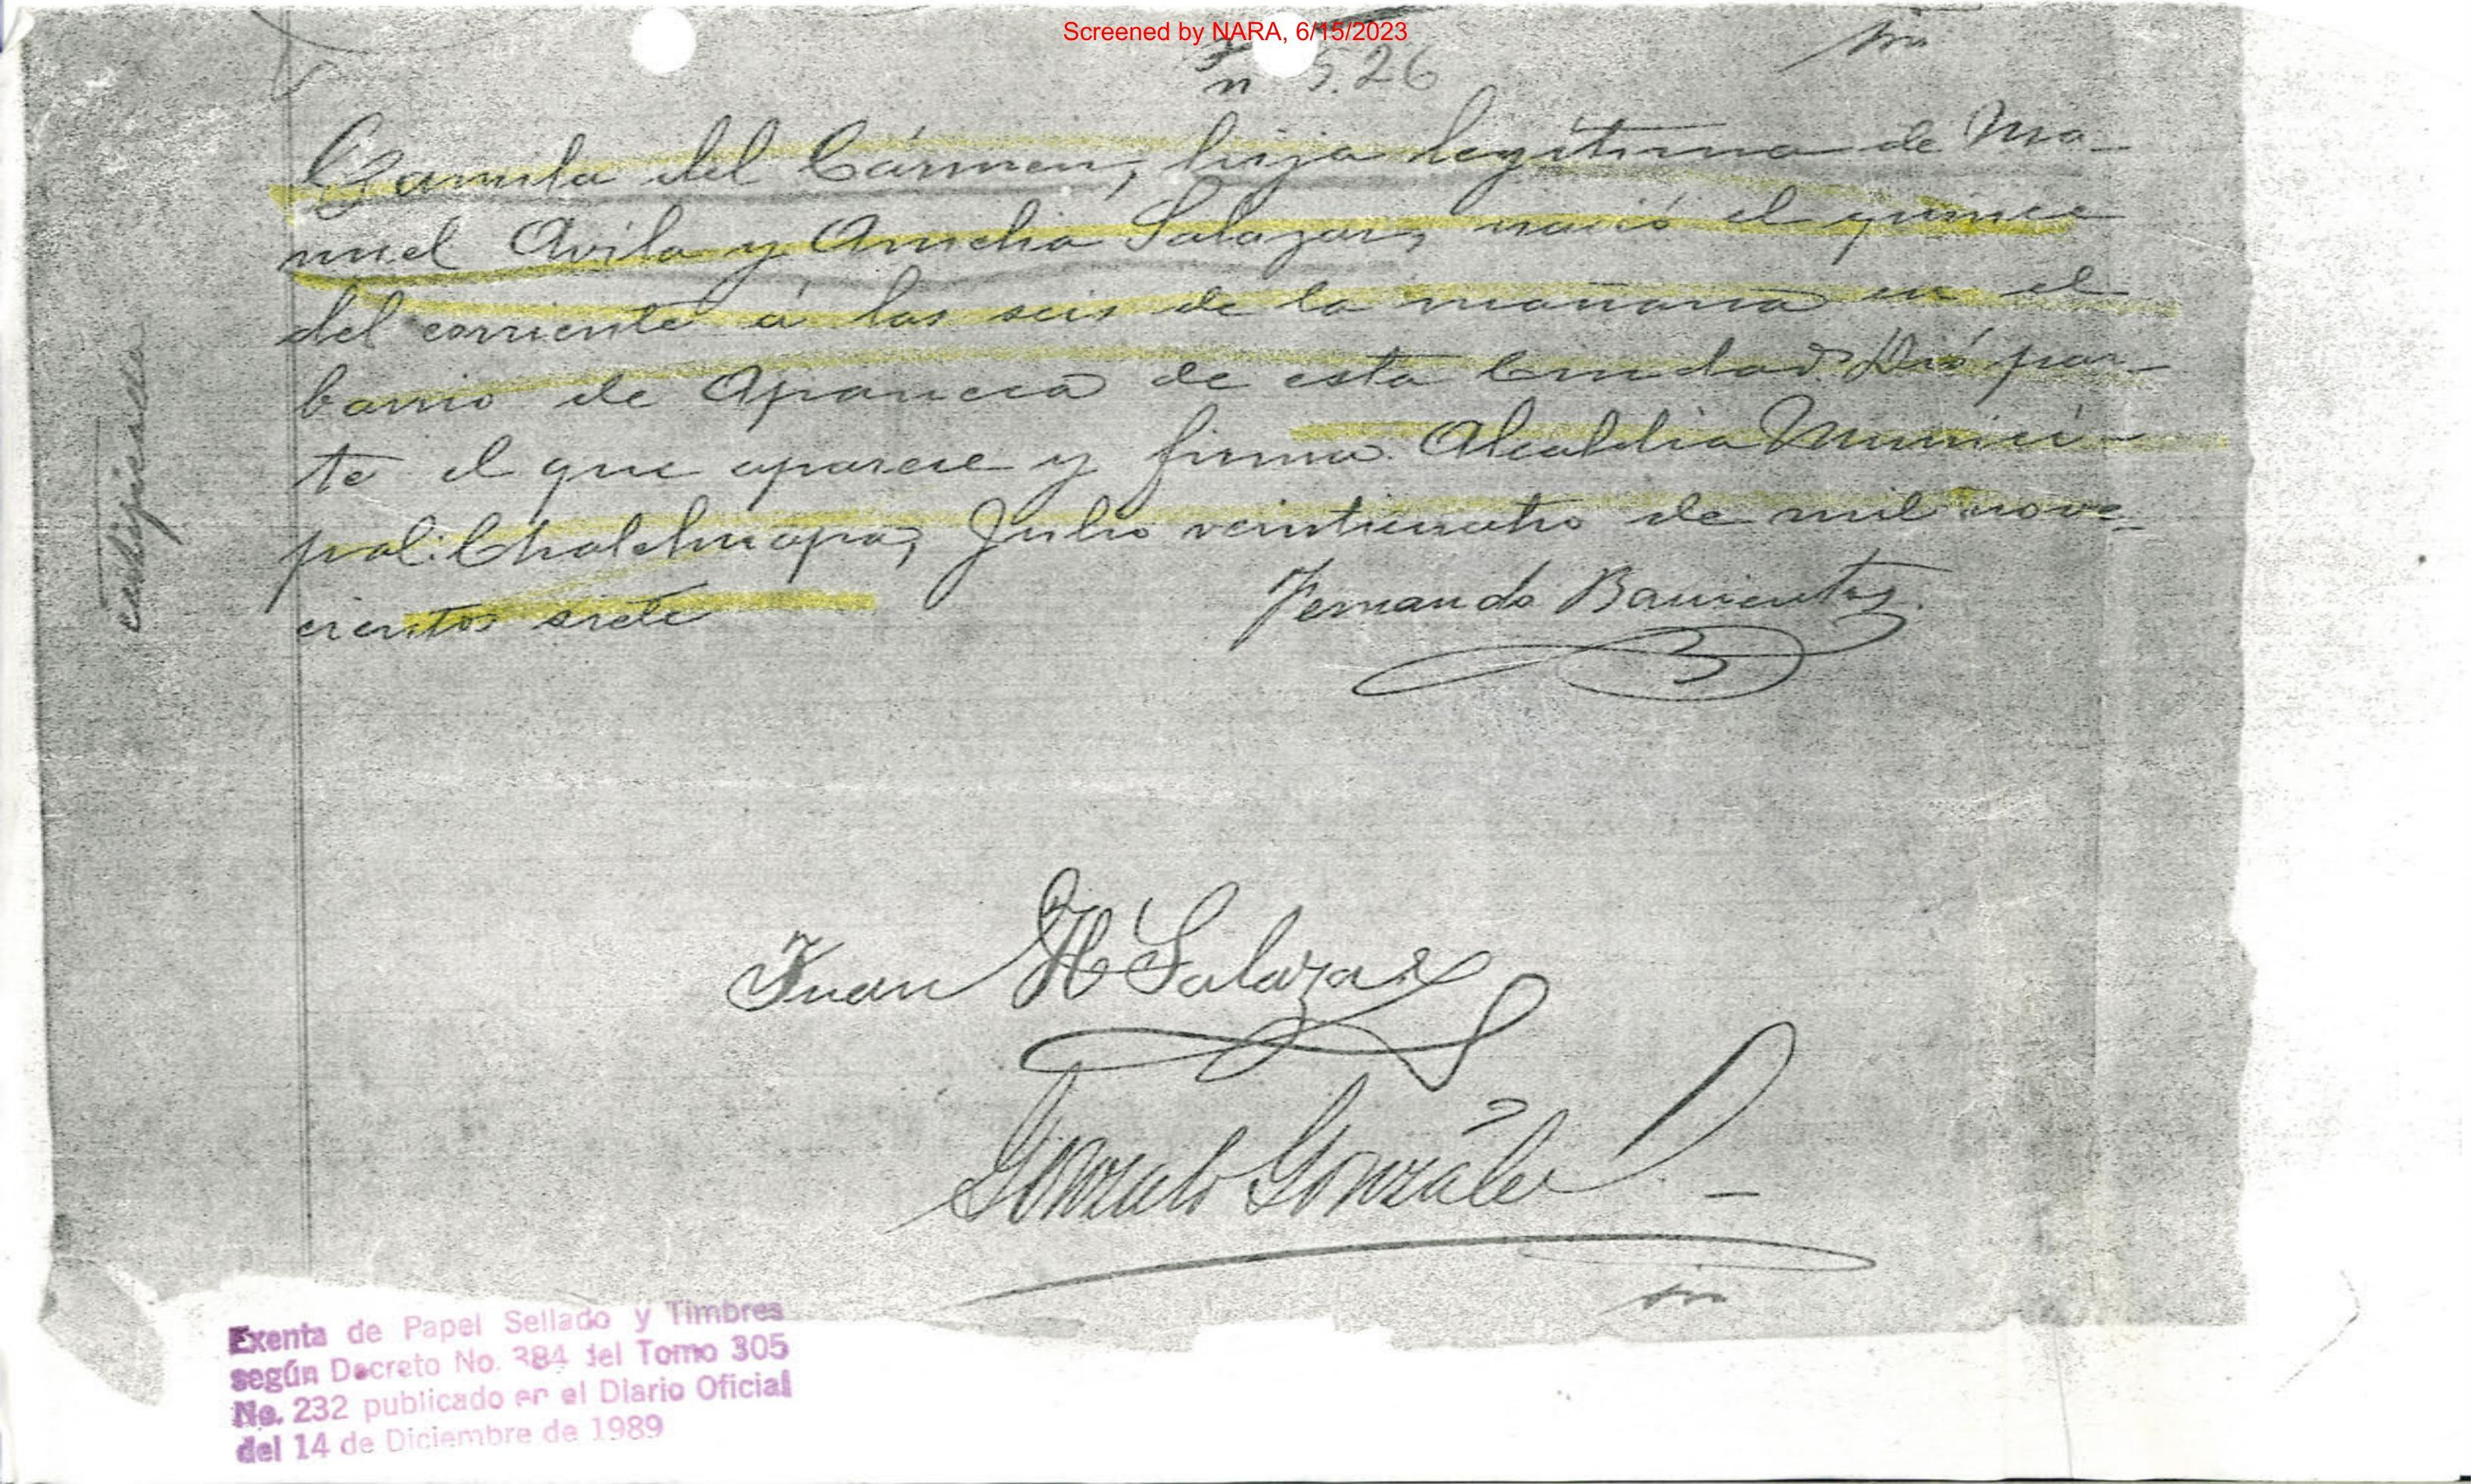 Screened by NARA, 6/15/2023
526
Camila del Cármen, hija legítima de Ma-
nuel Avila y Amelia Salazar, nació el quince
del corriente á las seis de la mañana en el
barrio de Apaneca de esta Ciudad. Dió par-
te el que aparece y firma. Alcaldia Munici-
pal: Chalchuapa, Julio veinticuatro de mil nove-
cientos siete
Fernando Barrientos.
Juan H Salazar
Gonzalo González
Exenta de Papel Sellado y Timbres
según Decreto No. 384 del Tomo 305
No. 232 publicado en el Diario Oficial
del 14 de Diciembre de 1989